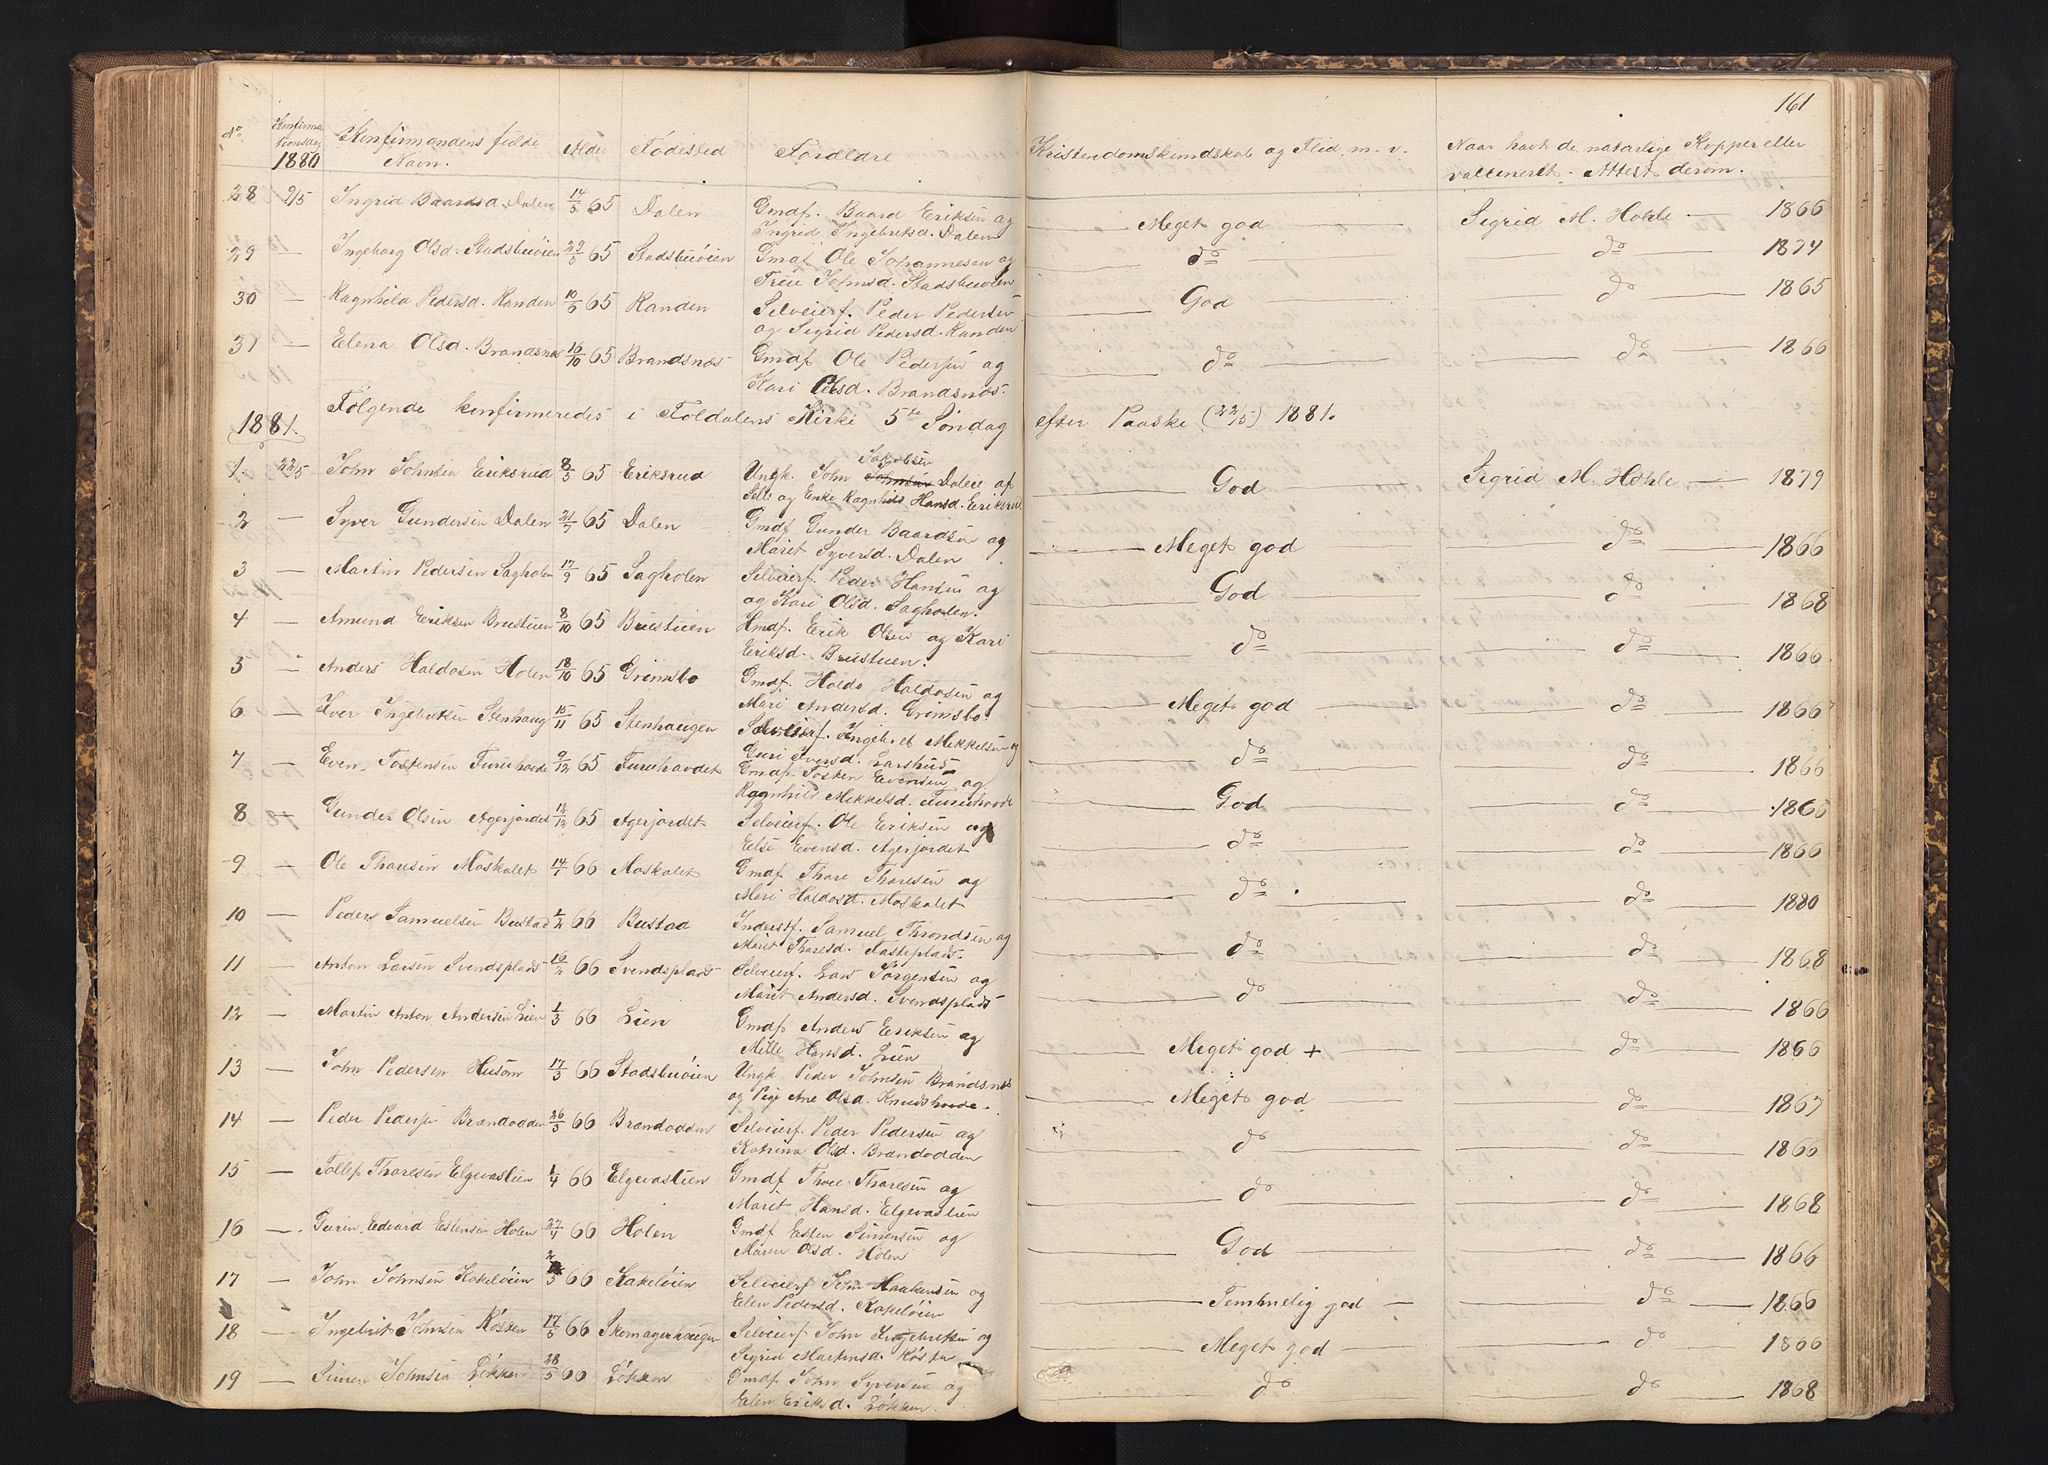 161
No. Konfirma- tionsdag 1880 Konfirmandens fulde Navn. Alder Födested Forældre Kristendomskundskab og Flid m. v. Naar havt de naturlige Kopper eller vaccineret. Attest derom.
28 9/5 Ingrid Baardsd. Dalen 14/5 65 Dalen Gmdf. Baard Eriksen og Meget god Sigrid M. Hohle 1866
Ingrid Ingebriktsd. Dalen
29 — Ingeborg Olsd. Stadsbuöien 29/5 65 Stadsbuöien Gmdf Ole Johannesen og do do 1874
Johnsd. Stadsbuöien
30 — Ragnhild Pedersd. Randen 10/5 65 Randen Selveierf. Peder Pedersen God do 1865
og Sigrid Pedersd. Randen
31 — Elena Olsd. Brandsnæs 16/10 65 Brandsnæs Gmdf Ole Pedersen og do do 1866
Kari Olsd. Brandsnæs.
1881. Følgende konfirmeredes i Foldalens Kirke 5te Søndag efter Paaske (22/5) 1881.
1 22/5 John Johnsen Eriksrud 8/5 65 Eriksrud Ungk. John Jakobsen Dalen af God Sigrid M. Hohle 1879
Selle og Enke Ragnhild Hansd. Eriksrud
2 — Syver Gundersen Dalen 21/7 65 Dalen Gmdf Gunder Baardsen og Meget god do 1866
Marit Syversd. Dalen
3 — Martin Pedersen Sagholen 17/9 65 Sagholen Selveierf. Peder Hansen og God do 1868
og Kari Olsd. Sagholen.
4 — Amund Eriksen Brustuen 8/10 65 Brustuen Hmdf. Erik Olsen og Kari do do 1866
Eriksd. Brustuen.
5 — Anders Haldosen Holen 18/10 65 Grimsbo Gmdf. Haldo Haldosen og Meget god do 1866
Mari Andersd. Grimsbo.
6 — Iver Ingebriktsen Stenhaug 15/11 65 Stenhaugen Selveierf. Ingebret Mikkelsen og do do 1866
Guri Iversd. Larshus
7 — Even Tostensen Furuhovde 9/12 65 Furuhovdet Gmdf. Tosten Evensen og God do 1866
Ragnhild Mikkelsd. Furuhovde
8 — Gunder Olsen Agerjordet 12/12 65 Agerjordet Selveierf. Ole Eriksen og do do 1866
Else Evensd. Agerjordet
9 — Ole Tharesen Moskalet 14/1 66 Moskalet Gmdf Thore Tharesen og do do 1880
Mari Haldosd. Moskalet
10 — Peder Samuelsen Bustad 1/2 66 Bustad Inderstf. Samuel Throndsen og do do 1868
Marit Tharesd.
11 — Anton Larsen Svendsplads 16/2 66 Svendsplads Selveierf. Lars Jörgensen og do do 1866
Marit Andersd. Svendsplads
12 — Martin Anton Andersen Lien 1/3 66 Lien Gmdf Anders Eriksen og Meget god + do 1866
Mille Hansd. Lien
13 — John Pedersen Husom 17/3 66 Stadsbuöien Ungk Peder Johnsen Brandsnæs Meget god do 1867
og Pige Ane Olsd. Knudshovde.
14 — Peder Pedersen Brandodden 26/3 66 Brandodden Selveierf. Peder Pedersen og do do 1866
Katrina Olsd. Brandodden
15 — Tollef Tharesen Elgevastien 1/4 66 Elgevastien Gmdf Thore Tharesen og do do 1868
Marit Hansd. Elgevastien
16 — Edvard Estensen Holen 27/4 66 Holen Gmdf Esten Simensen og God do 1866
Maren Olsd. Holen
17 — John Johnsen Kakelöien 2/5 66 Kakelöien Selveierf John Haakensen og Temmelig god do 1866
Elen Pedersd. Kakelöien
18 — Ingebrit Johnsen Kösten 17/5 66 Skomagerhaugen Selveierf John Ingebriktsen og Meget god do 1866
Sigrid Martinsd. Kösten
19 — Simen Johnsen Lökken 28/5 66 Lökken Gmdf John Syversen og do do 1868
Elen Eriksd. Lökken.